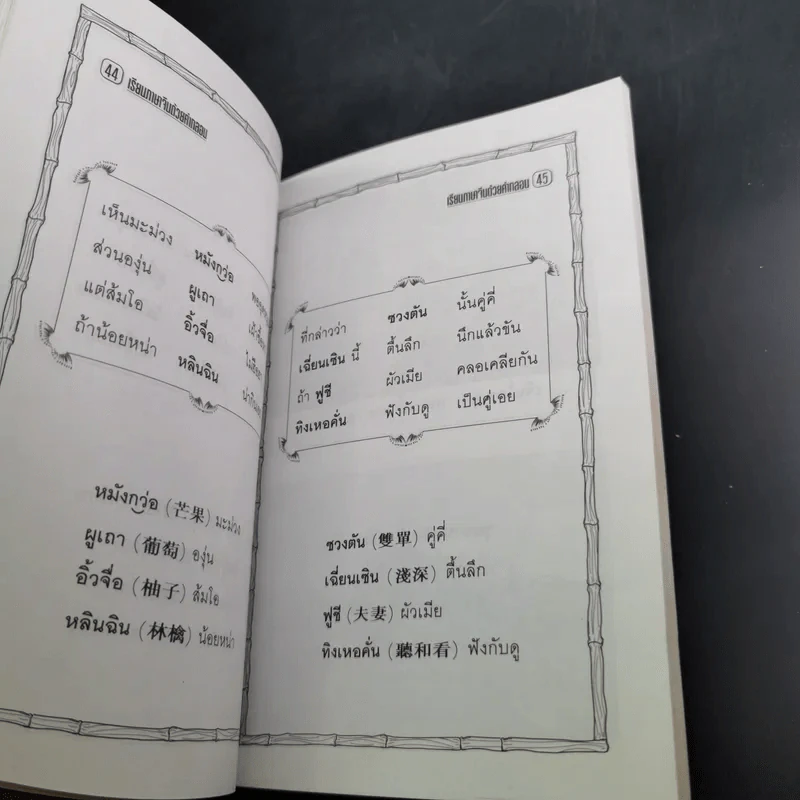 44 เรียนภาษาจีนด้วยคำกลอน
เห็นมะม่วง หมังกว่อ
ส่วนองุ่น ผูเถา
แต่ส้มโอ อิ้วจื่อ
ถ้าน้อยหน่า หลินฉิน
หมังกว่อ (芒果) มะม่วง
ผูเถา (葡萄) องุ่น
อิ้วจื่อ (柚子) ส้มโอ
หลินฉิน (林檎) น้อยหน่า
เรียนภาษาจีนด้วยคำกลอน 45
ที่กล่าวว่า ซวงตัน นั้นคู่คี่
เฉี่ยนเซิน นี้ ตื้นลึก นึกแล้วขัน
ถ้า ฟูชี ผัวเมีย คลอเคลียกัน
ทิงเหอคั่น ฟังกับดู เป็นคู่เอย
ซวงตัน (雙單) คู่คี่
เฉี่ยนเซิน (淺深) ตื้นลึก
ฟูชี (夫妻) ผัวเมีย
ทิงเหอคั่น (聽和看) ฟังกับดู